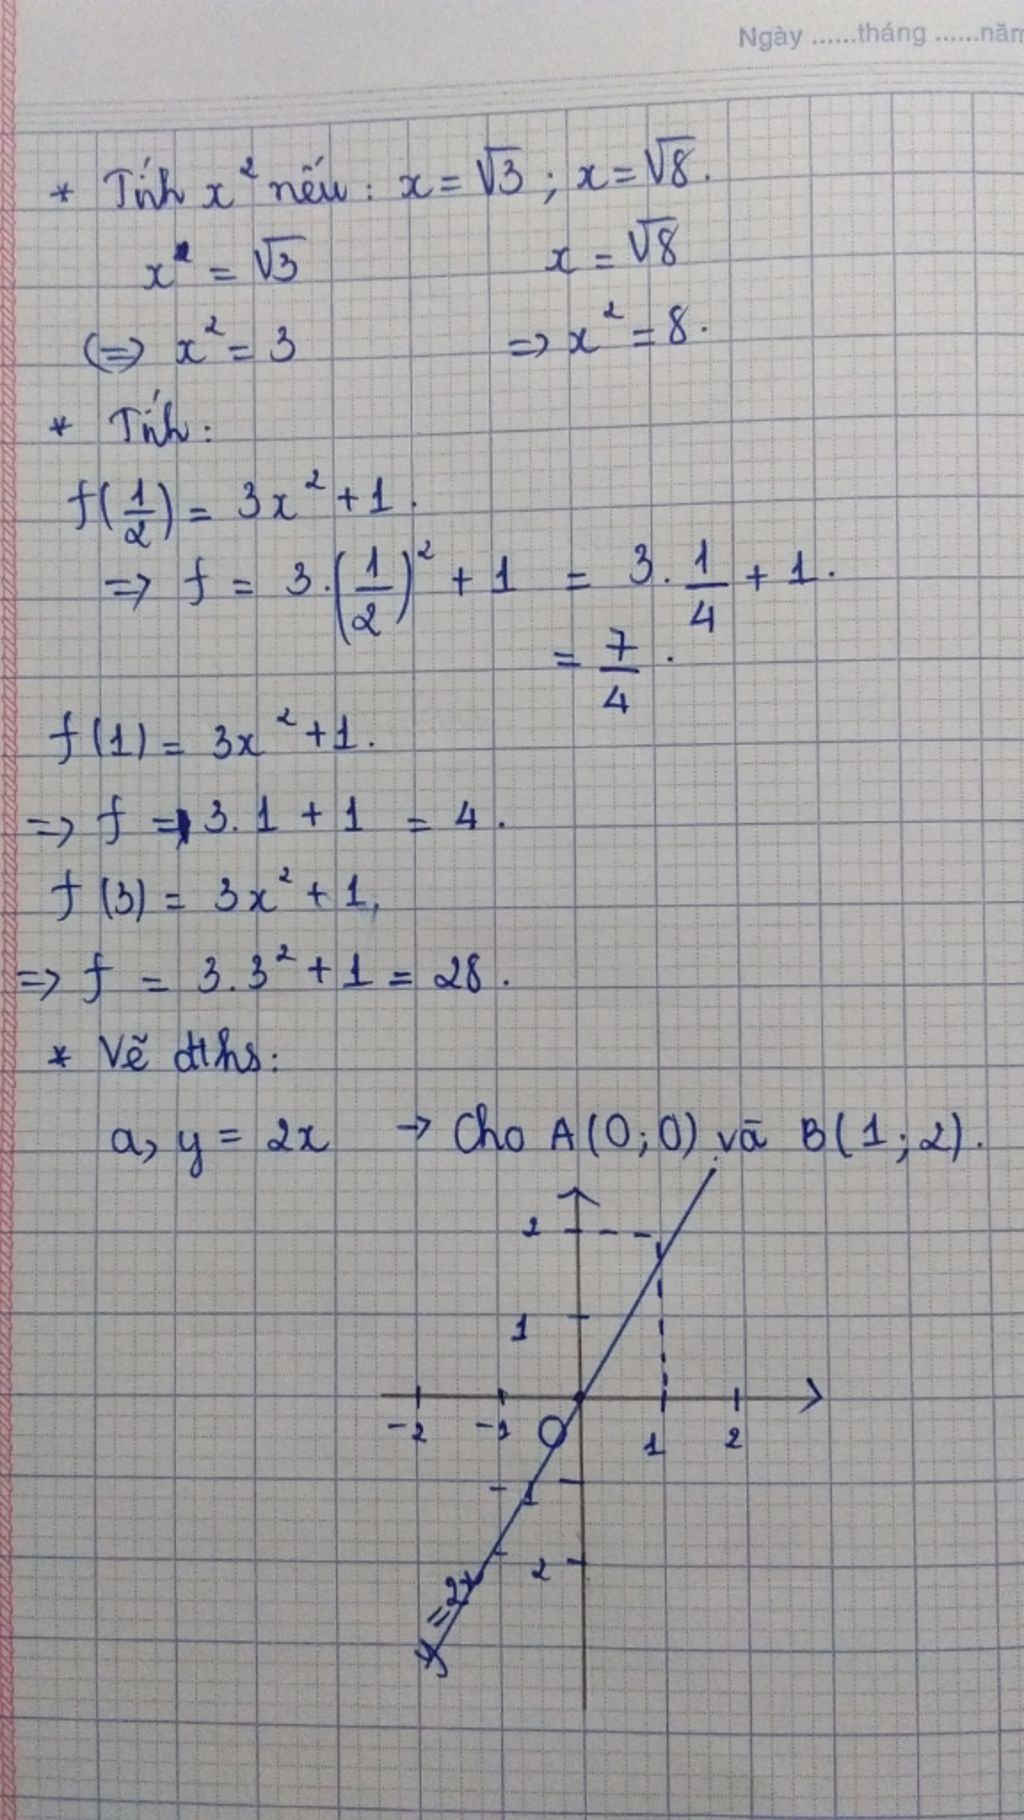 Ngày ......tháng ......năm
* Tính x² nếu : x = √3 ; x = √8.
x = √3 x = √8
(=) x² = 3 => x² = 8.
* Tính :
f(1/2) = 3x² + 1.
=> f = 3.(1/2)² + 1 = 3. 1/4 + 1.
= 7/4 .
f(1) = 3x² + 1.
=> f = 3.1 + 1 = 4.
f(3) = 3x² + 1,
=> f = 3.3² + 1 = 28.
* Vẽ đths :
a, y = 2x → Cho A(0;0) và B(1;2).
2
1
-2 -1 O 1 2
-1
-2
y = 2x